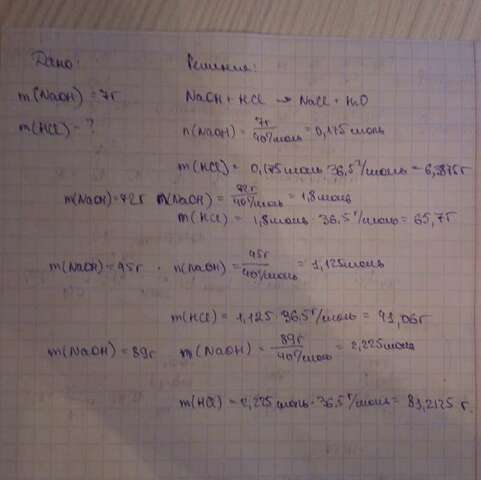 Дано: Решение:
m(NaOH) = 7г NaOH + HCl → NaCl + H₂O
m(HCl) - ? n(NaOH) = 7г / 40г/моль = 0,175 моль
m(HCl) = 0,175 моль · 36,5 г/моль = 6,3875г
m(NaOH) = 72г n(NaOH) = 72г / 40г/моль = 1,8 моль
m(HCl) = 1,8 моль · 36,5 г/моль = 65,7г
m(NaOH) = 45г . n(NaOH) = 45г / 40г/моль = 1,125 моль
m(HCl) = 1,125 · 36,5 г/моль = 41,06г
m(NaOH) = 89г m(NaOH) = 89г / 40г/моль = 2,225 моль
m(HCl) = 2,225 моль · 36,5 г/моль = 81,2125 г.